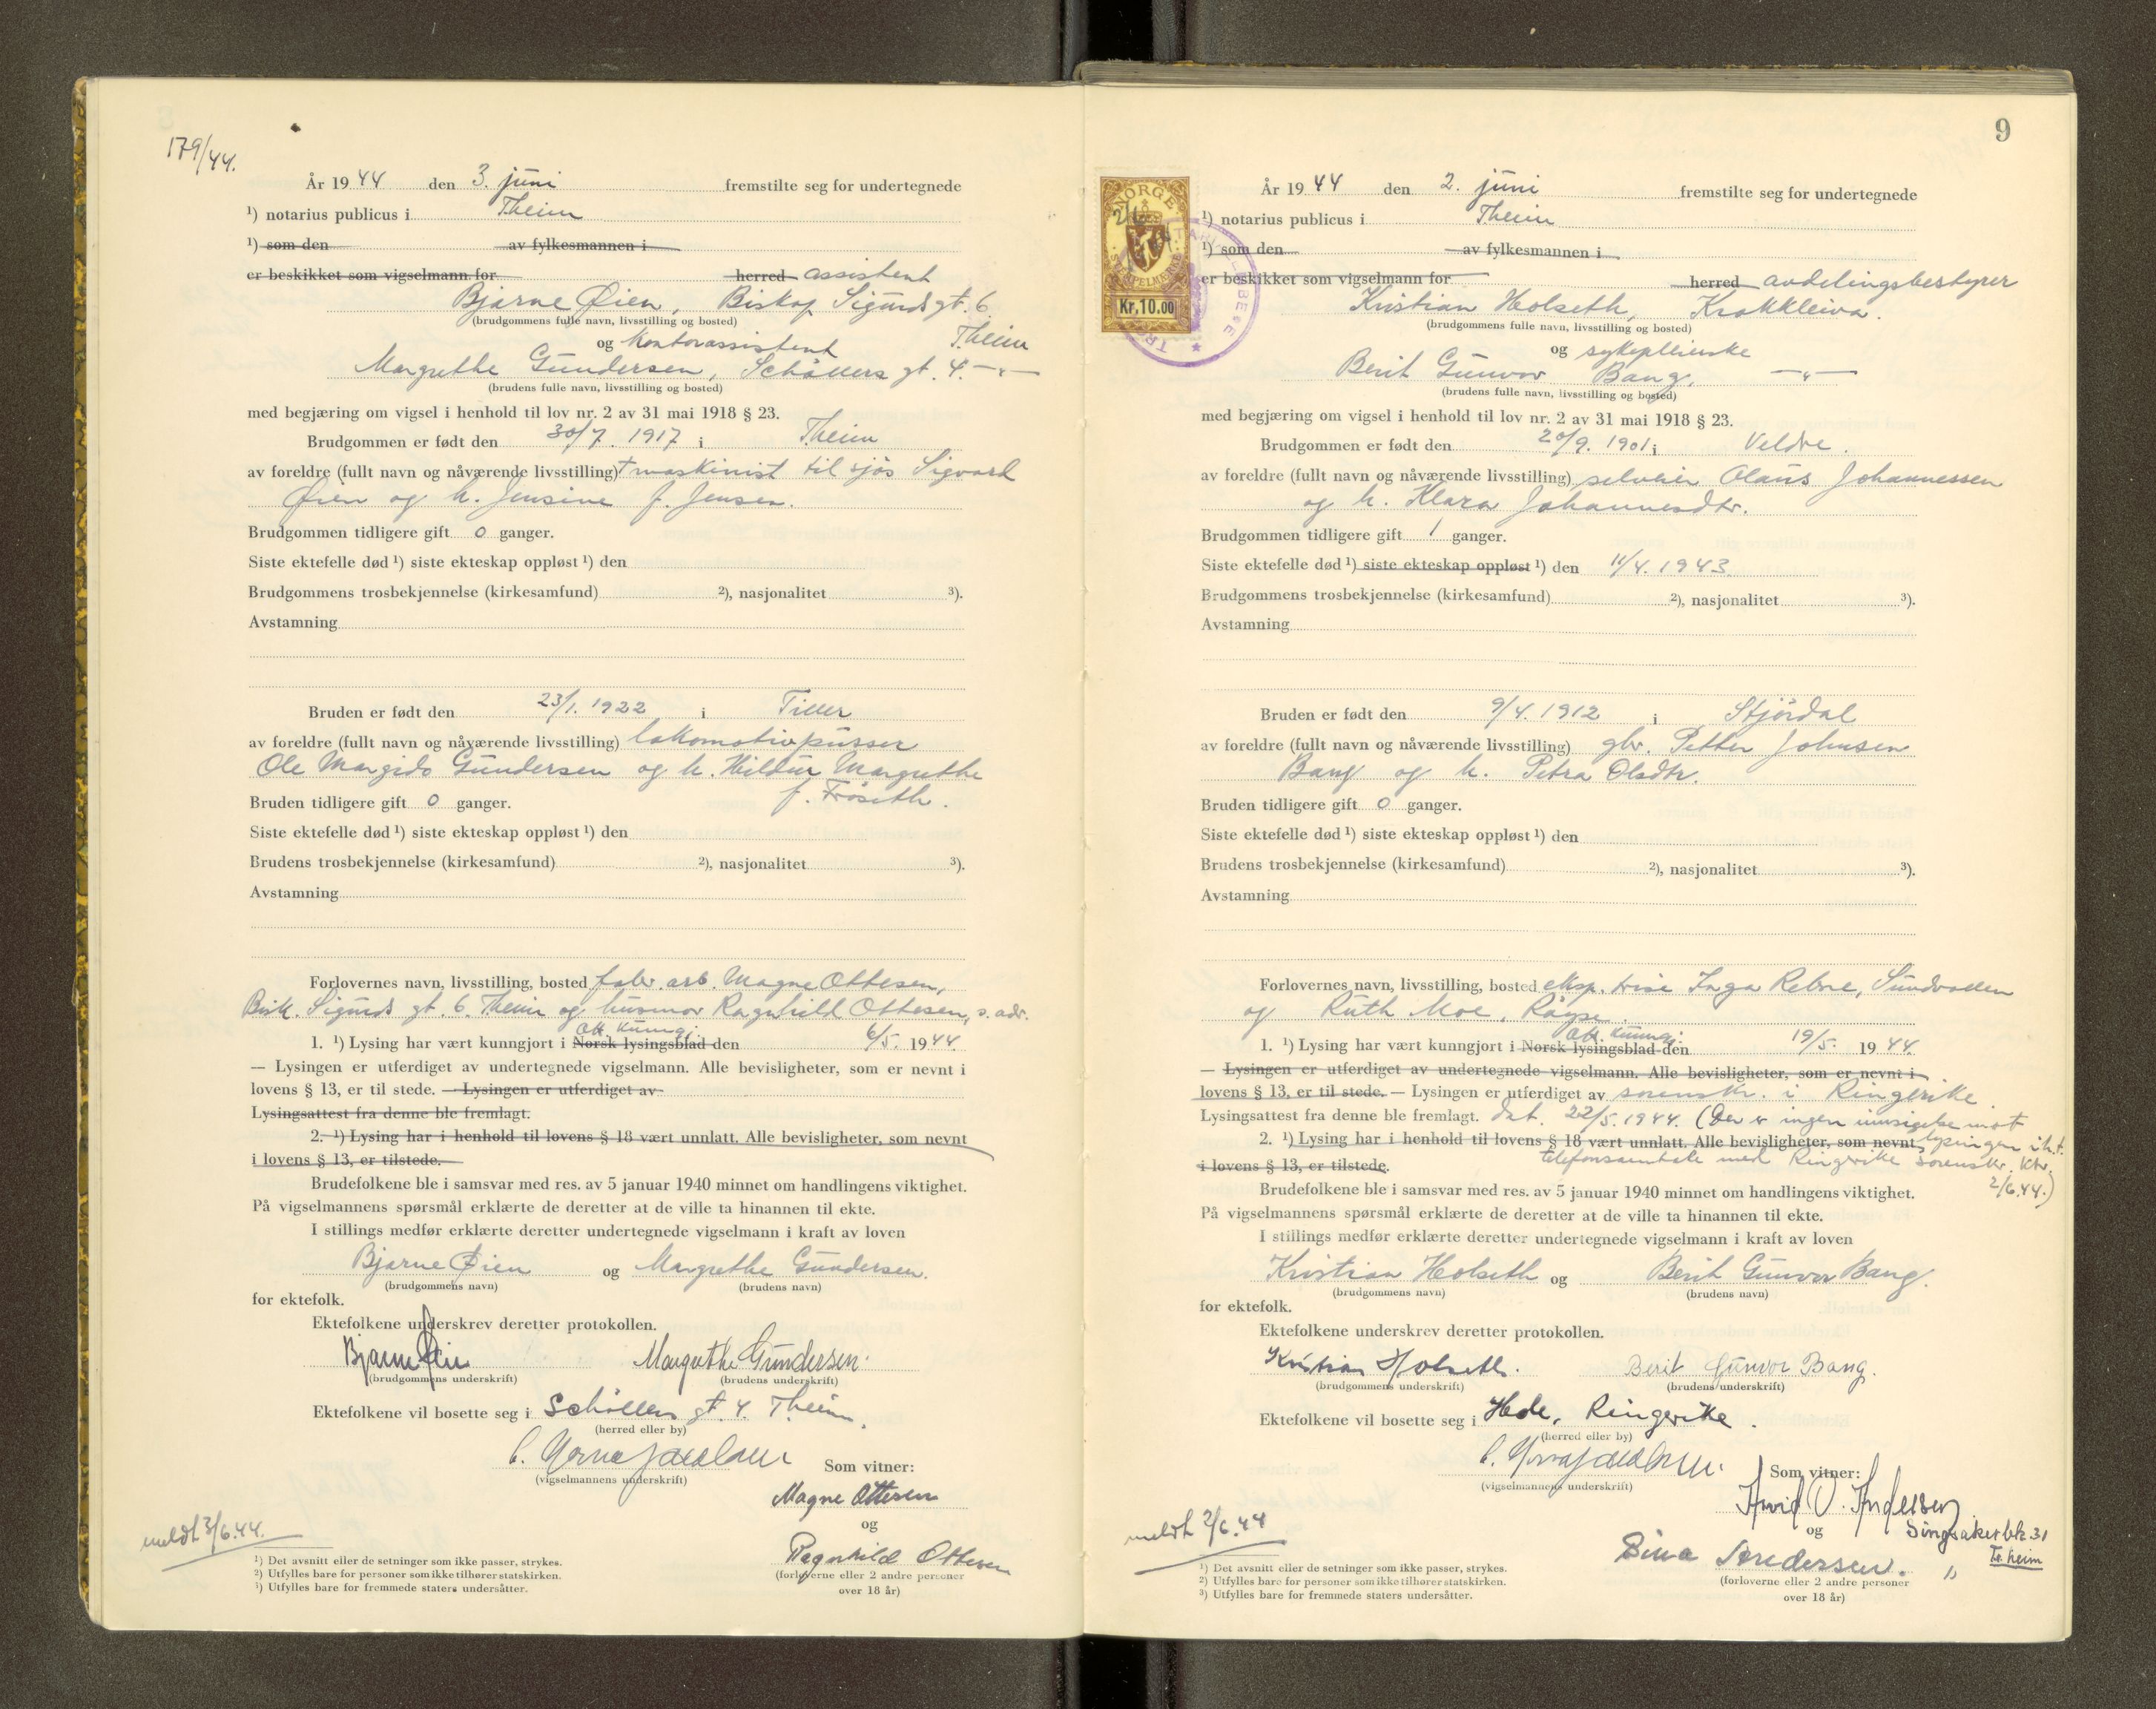 179/44.
År 1944 den 3. juni fremstilte seg for undertegnede
¹) notarius publicus i Theim
¹) som den av fylkesmannen i
er beskikket som vigselmann for herred assistent
Bjarne Øien, Biskop Sigurds gt. 6
(brudgommens fulle navn, livsstilling og bosted) Theim
og kontorassistent
Margrethe Gundersen, Schøllers gt. 4. —"—
(brudens fulle navn, livsstilling og bosted)
med begjæring om vigsel i henhold til lov nr. 2 av 31 mai 1918 § 23.
Brudgommen er født den 30/7. 1917 i Theim
av foreldre (fullt navn og nåværende livsstilling) † maskinist til sjøs Sigvard
Øien og h. Jensine f. Jensen.
Brudgommen tidligere gift 0 ganger.
Siste ektefelle død ¹) siste ekteskap oppløst ¹) den
Brudgommens trosbekjennelse (kirkesamfund) ²), nasjonalitet ³).
Avstamning
Bruden er født den 23/1. 1922 i Tiller
av foreldre (fullt navn og nåværende livsstilling) lokomotivpusser
Ole Margido Gundersen og h. Hildur Margrethe
f. Frøseth.
Bruden tidligere gift 0 ganger.
Siste ektefelle død ¹) siste ekteskap oppløst ¹) den
Brudens trosbekjennelse (kirkesamfund) ²), nasjonalitet ³).
Avstamning
Forlovernes navn, livsstilling, bosted fabr. arb. Magne Ottesen,
Bisk. Sigurds gt. 6. Theim og husmor Ragnhild Ottesen, s. adr.
Off. kunngj.
1. ¹) Lysing har vært kunngjort i Norsk lysingsblad den 6/5. 1944.
— Lysingen er utferdiget av undertegnede vigselmann. Alle bevisligheter, som er nevnt i
lovens § 13, er til stede. — Lysingen er utferdiget av
Lysingsattest fra denne ble fremlagt.
2. ¹) Lysing har i henhold til lovens § 18 vært unnlatt. Alle bevisligheter, som nevnt
i lovens § 13, er tilstede.
Brudefolkene ble i samsvar med res. av 5 januar 1940 minnet om handlingens viktighet.
På vigselmannens spørsmål erklærte de deretter at de ville ta hinannen til ekte.
I stillings medfør erklærte deretter undertegnede vigselmann i kraft av loven
Bjarne Øien og Margrethe Gundersen.
(brudgommens navn) (brudens navn)
for ektefolk.
Ektefolkene underskrev deretter protokollen.
Bjarne Øien Margrethe Gundersen.
(brudgommens underskrift) (brudens underskrift)
Ektefolkene vil bosette seg i Schøllers gt. 4. Theim.
(herred eller by)
(vigselmannens underskrift) Som vitner:
Magne Ottesen
og
Ragnhild Ottesen
(forloverne eller 2 andre personer
over 18 år)
meldt 3/6.44.
¹) Det avsnitt eller de setninger som ikke passer, strykes.
²) Utfylles bare for personer som ikke tilhører statskirken.
³) Utfylles bare for fremmede staters undersåtter.
9
NORGE
STEMPELMERKE
Kr. 10.00
År 1944 den 2. juni fremstilte seg for undertegnede
¹) notarius publicus i Theim
¹) som den av fylkesmannen i
er beskikket som vigselmann for herred avdelingsbestyrer
Kristian Holseth, Krokkleiva.
(brudgommens fulle navn, livsstilling og bosted)
og sykepleierske
Berit Gunvor Bang, —"—
(brudens fulle navn, livsstilling og bosted)
med begjæring om vigsel i henhold til lov nr. 2 av 31 mai 1918 § 23.
Brudgommen er født den 20/9. 1901 i Veldre.
av foreldre (fullt navn og nåværende livsstilling) selveier Olaus Johannessen
og h. Klara Johannesdtr.
Brudgommen tidligere gift 1 ganger.
Siste ektefelle død ¹) siste ekteskap oppløst ¹) den 11/4. 1943.
Brudgommens trosbekjennelse (kirkesamfund) ²), nasjonalitet ³).
Avstamning
Bruden er født den 9/4. 1912 i Stjørdal
av foreldre (fullt navn og nåværende livsstilling) gbr. Petter Johnsen
Bang og h. Petra Olsdtr.
Bruden tidligere gift 0 ganger.
Siste ektefelle død ¹) siste ekteskap oppløst ¹) den
Brudens trosbekjennelse (kirkesamfund) ²), nasjonalitet ³).
Avstamning
Forlovernes navn, livsstilling, bosted eksp. trise Inga Rebne, Sundvollen
og Ruth Moe, Røyse.
Off. kunngj.
1. ¹) Lysing har vært kunngjort i Norsk lysingsblad den 19/5. 1944.
— Lysingen er utferdiget av undertegnede vigselmann. Alle bevisligheter, som er nevnt i
lovens § 13, er til stede. — Lysingen er utferdiget av sorenskr. i Ringerike.
Lysingsattest fra denne ble fremlagt. dat. 22/5. 1944. (Der er ingen innsigelse mot
2. ¹) Lysing har i henhold til lovens § 18 vært unnlatt. Alle bevisligheter, som nevnt lysingen i h. t.
i lovens § 13, er tilstede. telefonsamtale med Ringerike sorenskr. ktr.
2/6.44.)
Brudefolkene ble i samsvar med res. av 5 januar 1940 minnet om handlingens viktighet.
På vigselmannens spørsmål erklærte de deretter at de ville ta hinannen til ekte.
I stillings medfør erklærte deretter undertegnede vigselmann i kraft av loven
Kristian Holseth og Berit Gunvor Bang.
(brudgommens navn) (brudens navn)
for ektefolk.
Ektefolkene underskrev deretter protokollen.
Kristian Holseth. Berit Gunvor Bang.
(brudgommens underskrift) (brudens underskrift)
Ektefolkene vil bosette seg i Hole, Ringerike.
(herred eller by)
(vigselmannens underskrift) Som vitner:
Arvid O. Andersen
og Singsakerbk. 31
Tr.heim
Sina Andersen. "
(forloverne eller 2 andre personer
over 18 år)
meldt 2/6.44
¹) Det avsnitt eller de setninger som ikke passer, strykes.
²) Utfylles bare for personer som ikke tilhører statskirken.
³) Utfylles bare for fremmede staters undersåtter.